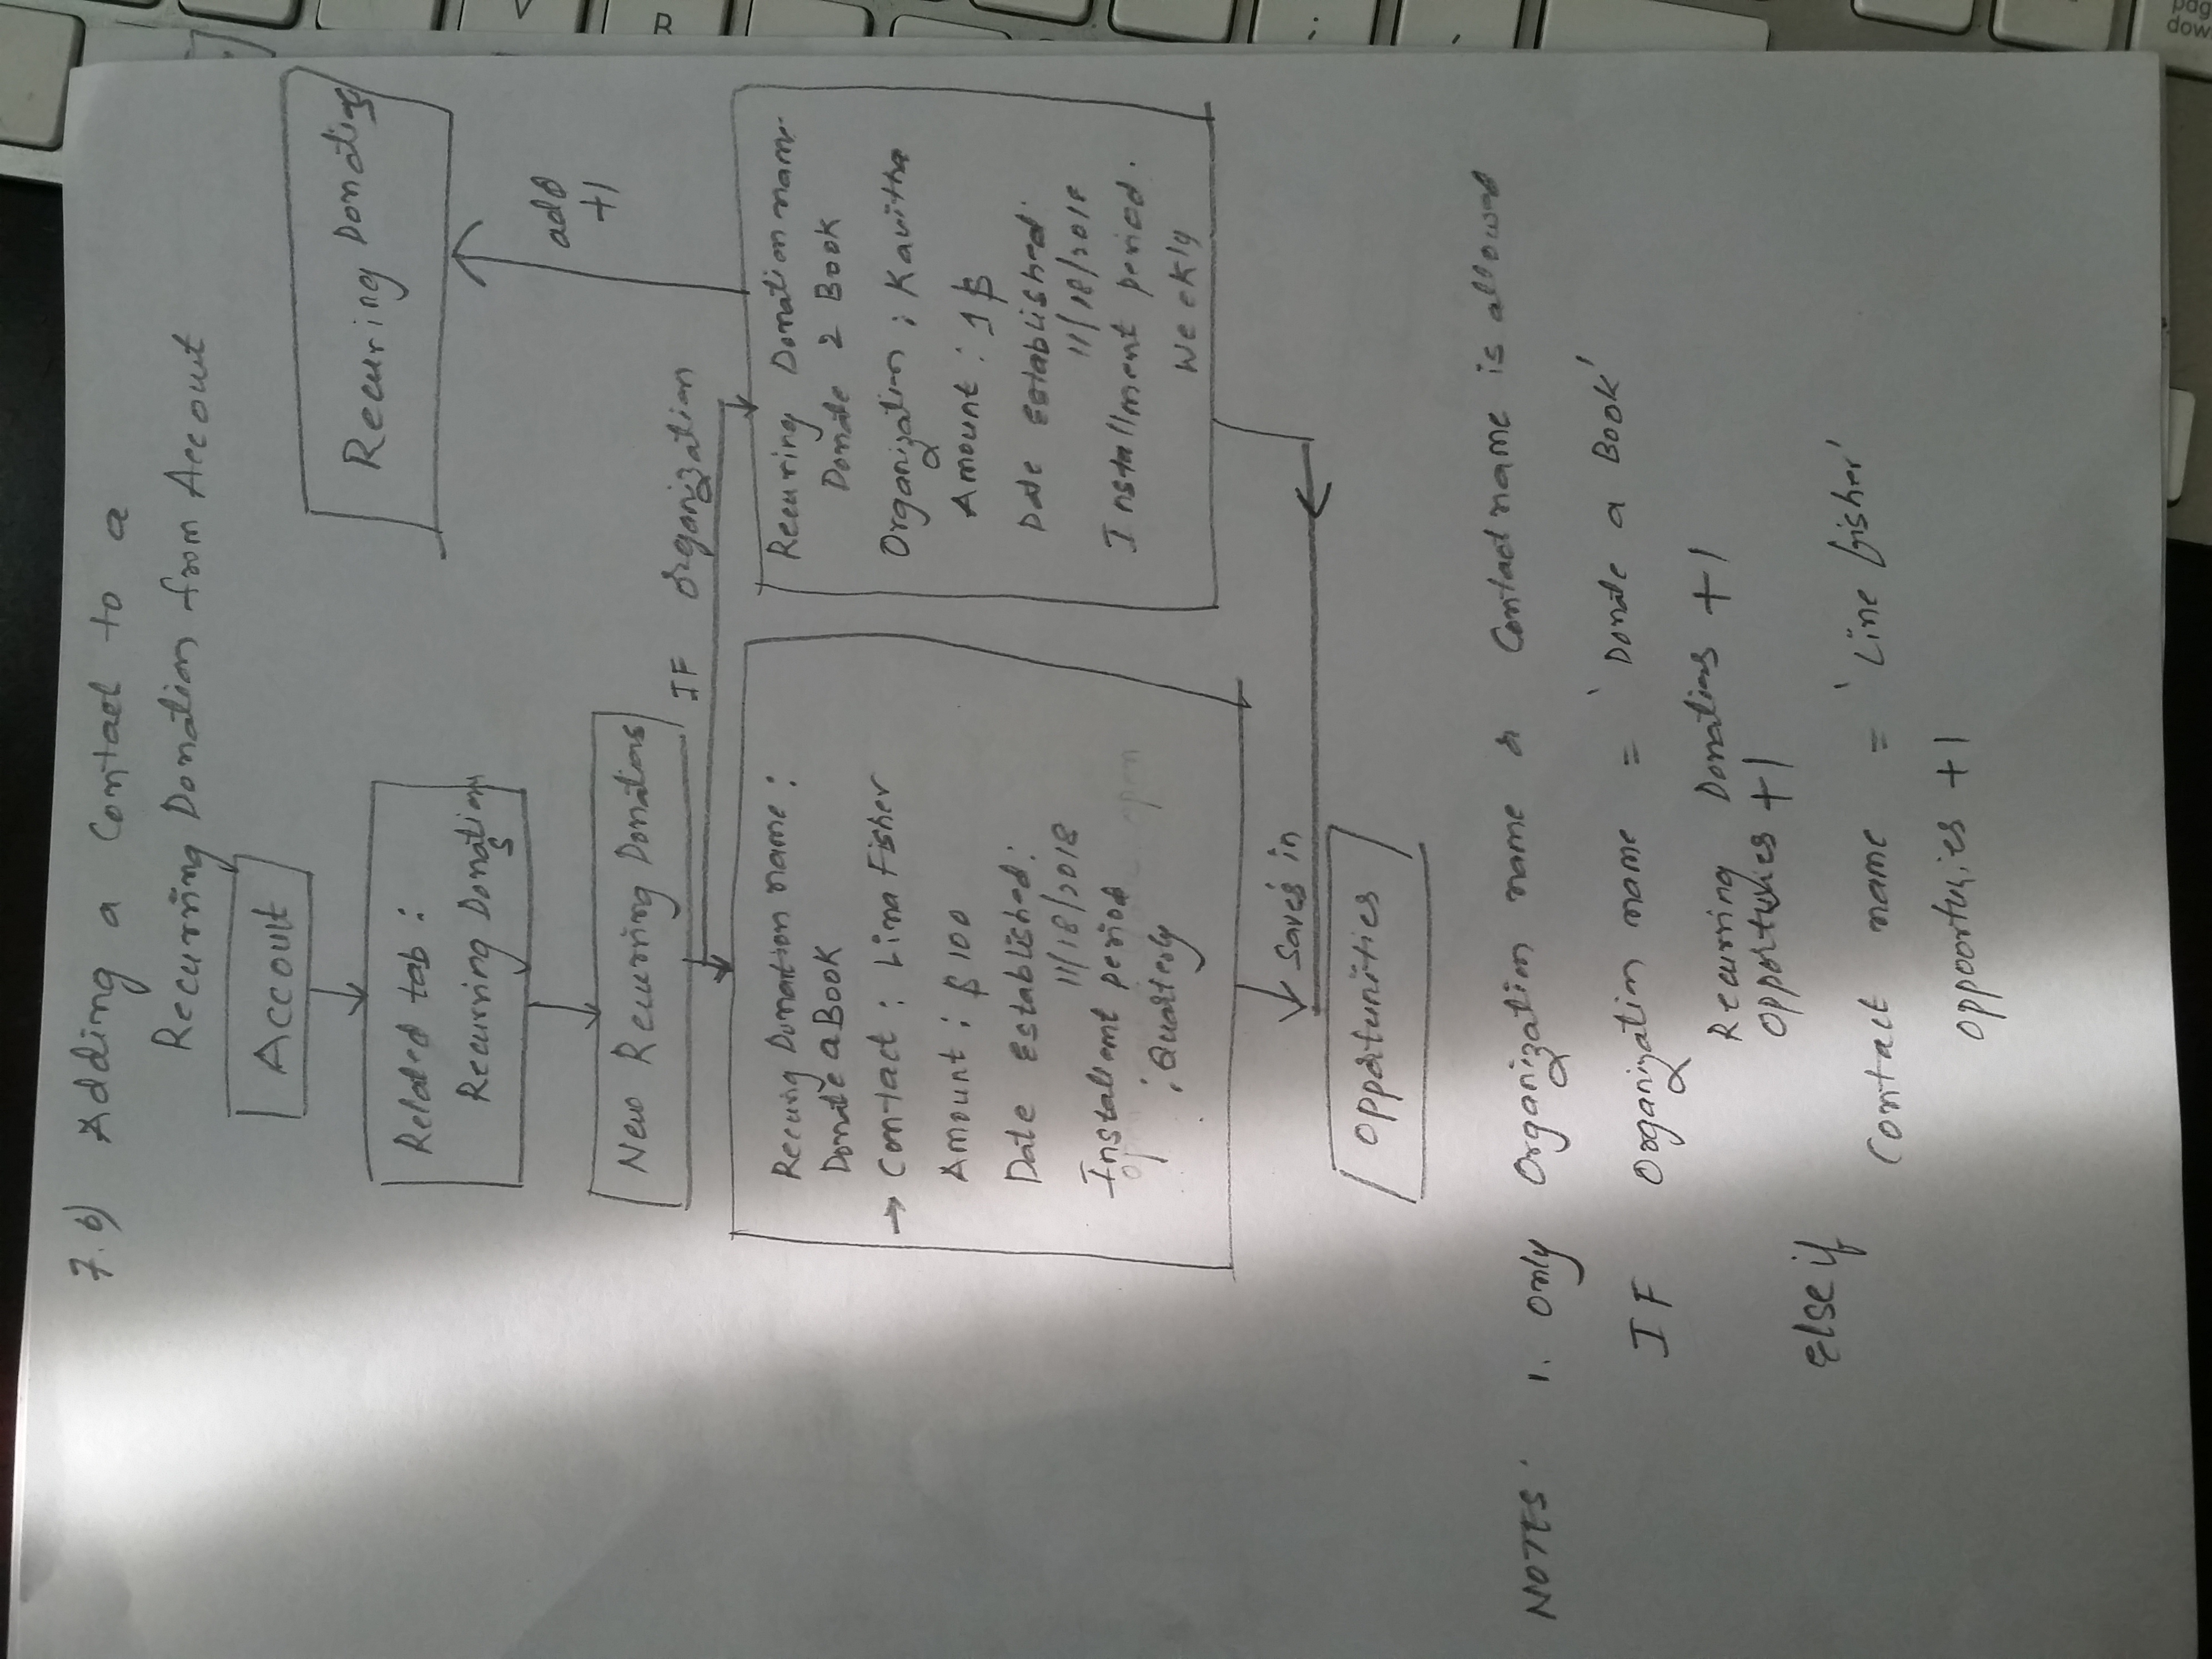 7.b) Adding a Contact to a
Recurring Donation from Account
Account
Related tab :
Recurring Donations
New Recurring Donations
IF Organization
Recurring Donations
add
+1
Recuring Donation name :
Donate a Book
→ Contact : Lima Fisher
Amount : $ 100
Date Established :
11/18/2018
Instalment period
: Quarterly
Recurring Donation name
Donate 2 Book
Organization : Kavitha
Amount : 1 $
Date Established
11/18/2018
Installment period.
Weekly
Saves in
Opportunities
NOTES : 1. Only Organization name & Contact name is allowed
IF Organization name = 'Donate a Book'
Recurring Donations +1
Opportunies +1
Else if Contact name = 'Line fisher'
Oppoortunies +1
page
down
R
;